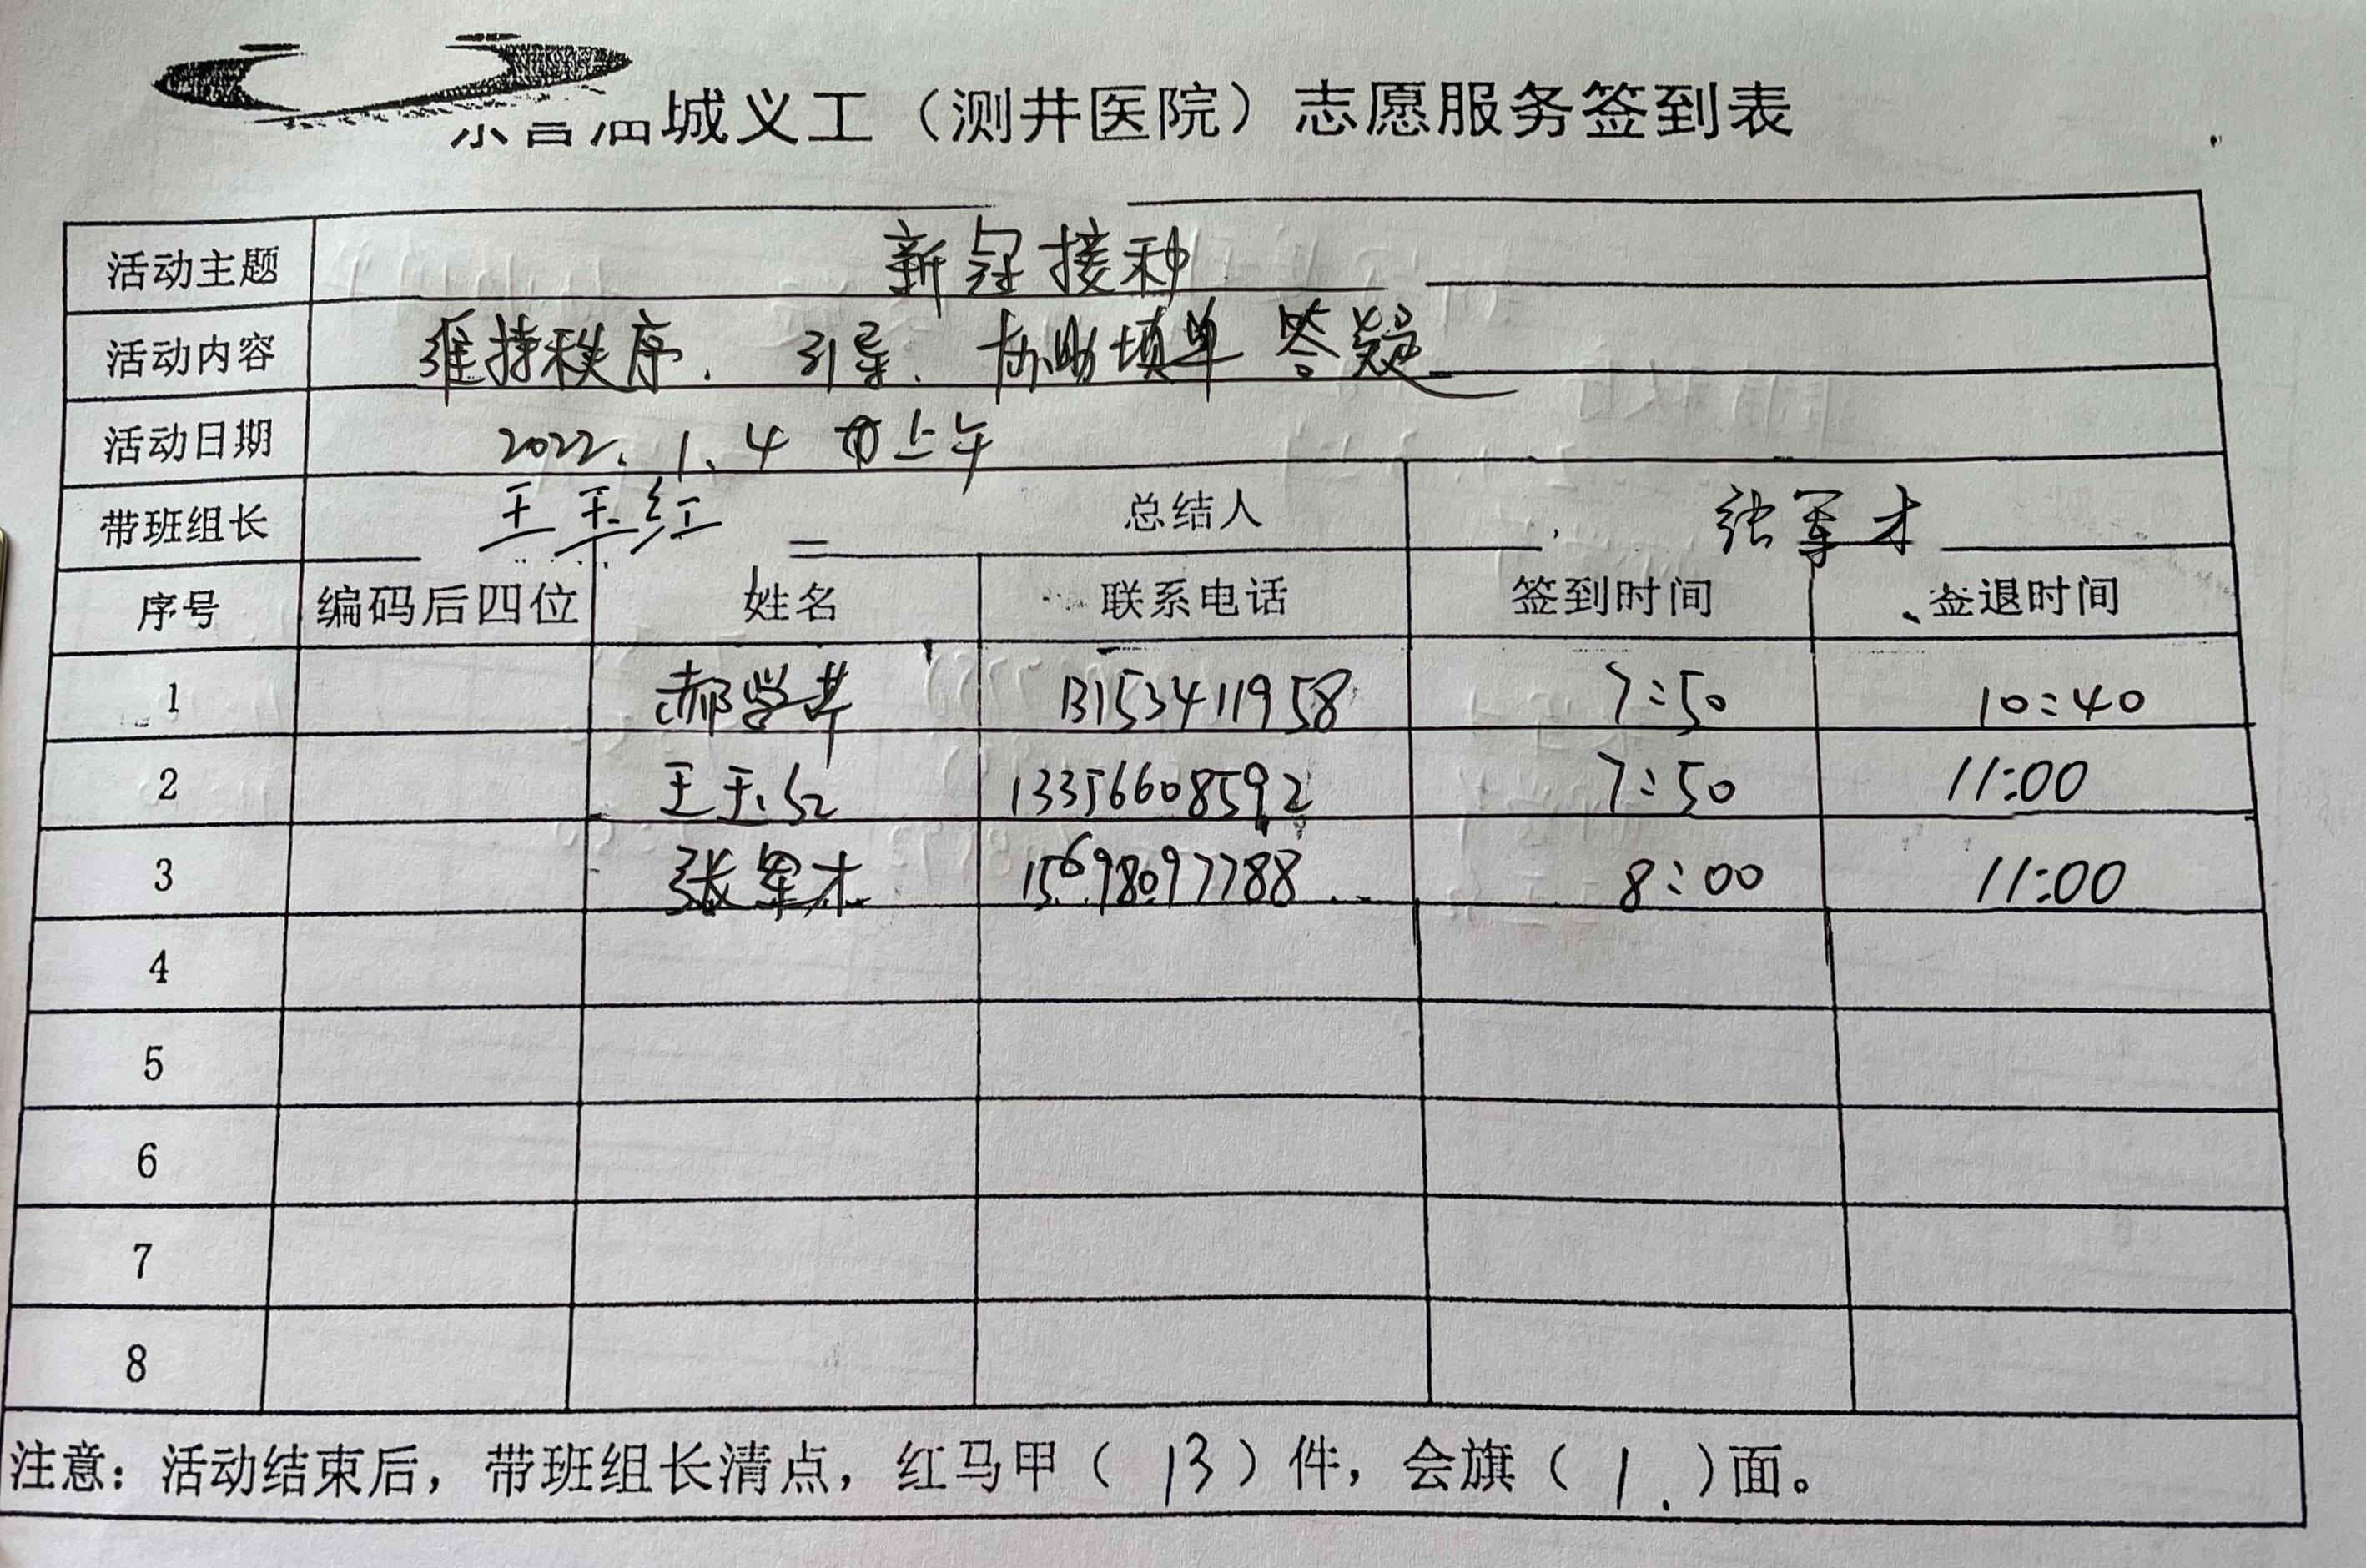 城义工（测井医院）志愿服务签到表
活动主题 新冠接种
活动内容 维持秩序. 引导. 协助填单 答疑
活动日期 2022. 1. 4 上午
带班组长 王玉红 总结人 张军才
序号 编码后四位 姓名 联系电话 签到时间 签退时间
1 郝学苹 13153411958 7:50 10:40
2 王玉红 13356608592 7:50 11:00
3 张军才 15698097788 8:00 11:00
4
5
6
7
8
注意：活动结束后，带班组长清点，红马甲（ 13 ）件，会旗（ 1. ）面。